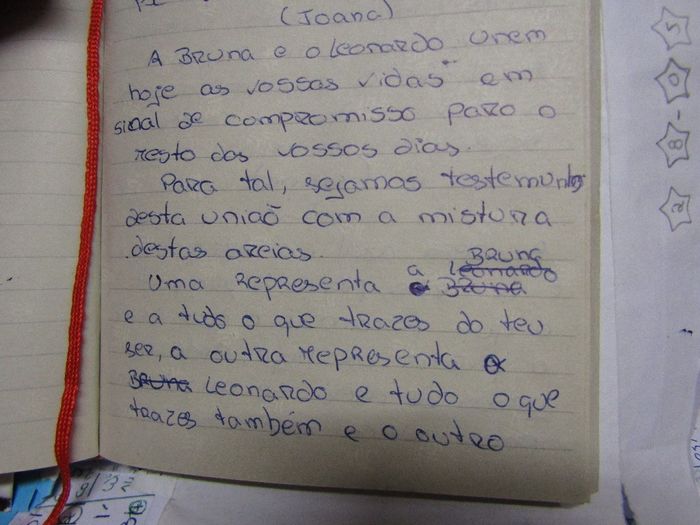 (Joana)
A Bruna e o Leonardo unem
hoje as vossas vidas em
sinal de compromisso para o
resto dos vossos dias.
Para tal, sejamos testemunhas
desta união com a mistura
destas areias.
Bruna
Uma representa a Leonardo
Bruna
e a tudo o que trazes do teu
ser, a outra representa o
Bruna Leonardo e tudo o que
trazes também e o outro
5
0
-
8
2
9132